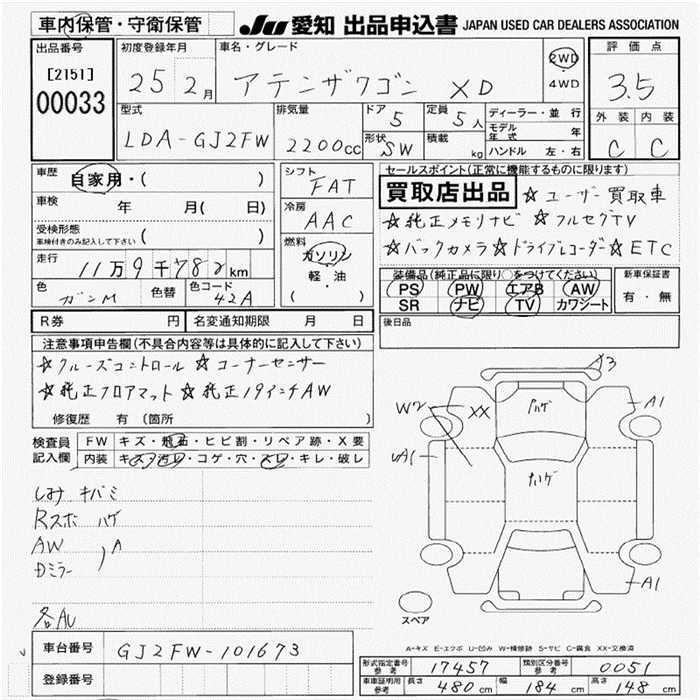 車内保管・守衛保管
JU 愛知 出品申込書 JAPAN USED CAR DEALERS ASSOCIATION
出品番号
[2151]
00033
初度登録年月
25 2月
車名・グレード
アテンザワゴン XD
2WD
4WD
評価点
3.5
外装 内装
C C
型式
LDA-GJ2FW
排気量
2200cc
ドア
5
定員
5人
形状
SW
積載
kg
ディーラー・並行
モデル年式 年
ハンドル 左・右
車歴
自家用・( )
車検
年 月( 日)
受検形態
車検付きのみ記入して下さい ( )
走行
11万9千782km
色
ガンM
色替
色コード
42A
シフト
FAT
冷房
AAC
燃料
ガソリン
軽・油
( ・ )
セールスポイント(正常に機能するものに限ります)
買取店出品 ☆ユーザー買取車
☆純正メモリナビ ☆フルセグTV
☆バックカメラ ☆ドライブレコーダー ☆ETC
装備品(純正品に限り○をつけてください)
PS PW エアB AW
SR ナビ TV カワシート
新車保証書
有・無
R券 円
名変通知期限 月 日
後日品
注意事項申告欄(不具合内容等は具体的に記入して下さい)
☆クルーズコントロール ☆コーナーセンサー
☆純正フロアマット ☆純正19インチAW
修復歴 有(箇所 )
検査員記入欄
FW キズ・飛石・ヒビ割・リペア跡・X要
内装 キズ・汚レ・コゲ・穴・スレ・キレ・破レ
しみ キバミ
Rスポ ハゲ
AW
Dミラー
A
各AU
X3
W2
XX
ハゲ
A1
UA1
ハゲ
A1
スペア
A-キズ E-エクボ U-凹み W-補修跡 S-サビ C-腐食 XX-交換済
車台番号
GJ2FW-101673
登録番号
形式指定番号
参考
17457
類別区分番号
参考
0051
車車証明用
参考
長さ 480cm 幅 184cm 高さ 148cm